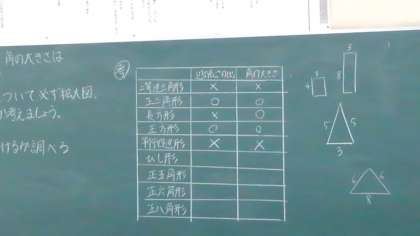 角の大きさは
ついて必ず拡大図、
考えましょう。
けるか調べる
考
辺の長さの比 角の大きさ
二等辺三角形 × ×
正三角形 ○ ○
長方形 × ○
正方形 ○ ○
平行四辺形 × ×
ひし形
正五角形
正六角形
正八角形
3
8
3
4
5 5
3
6 6
8